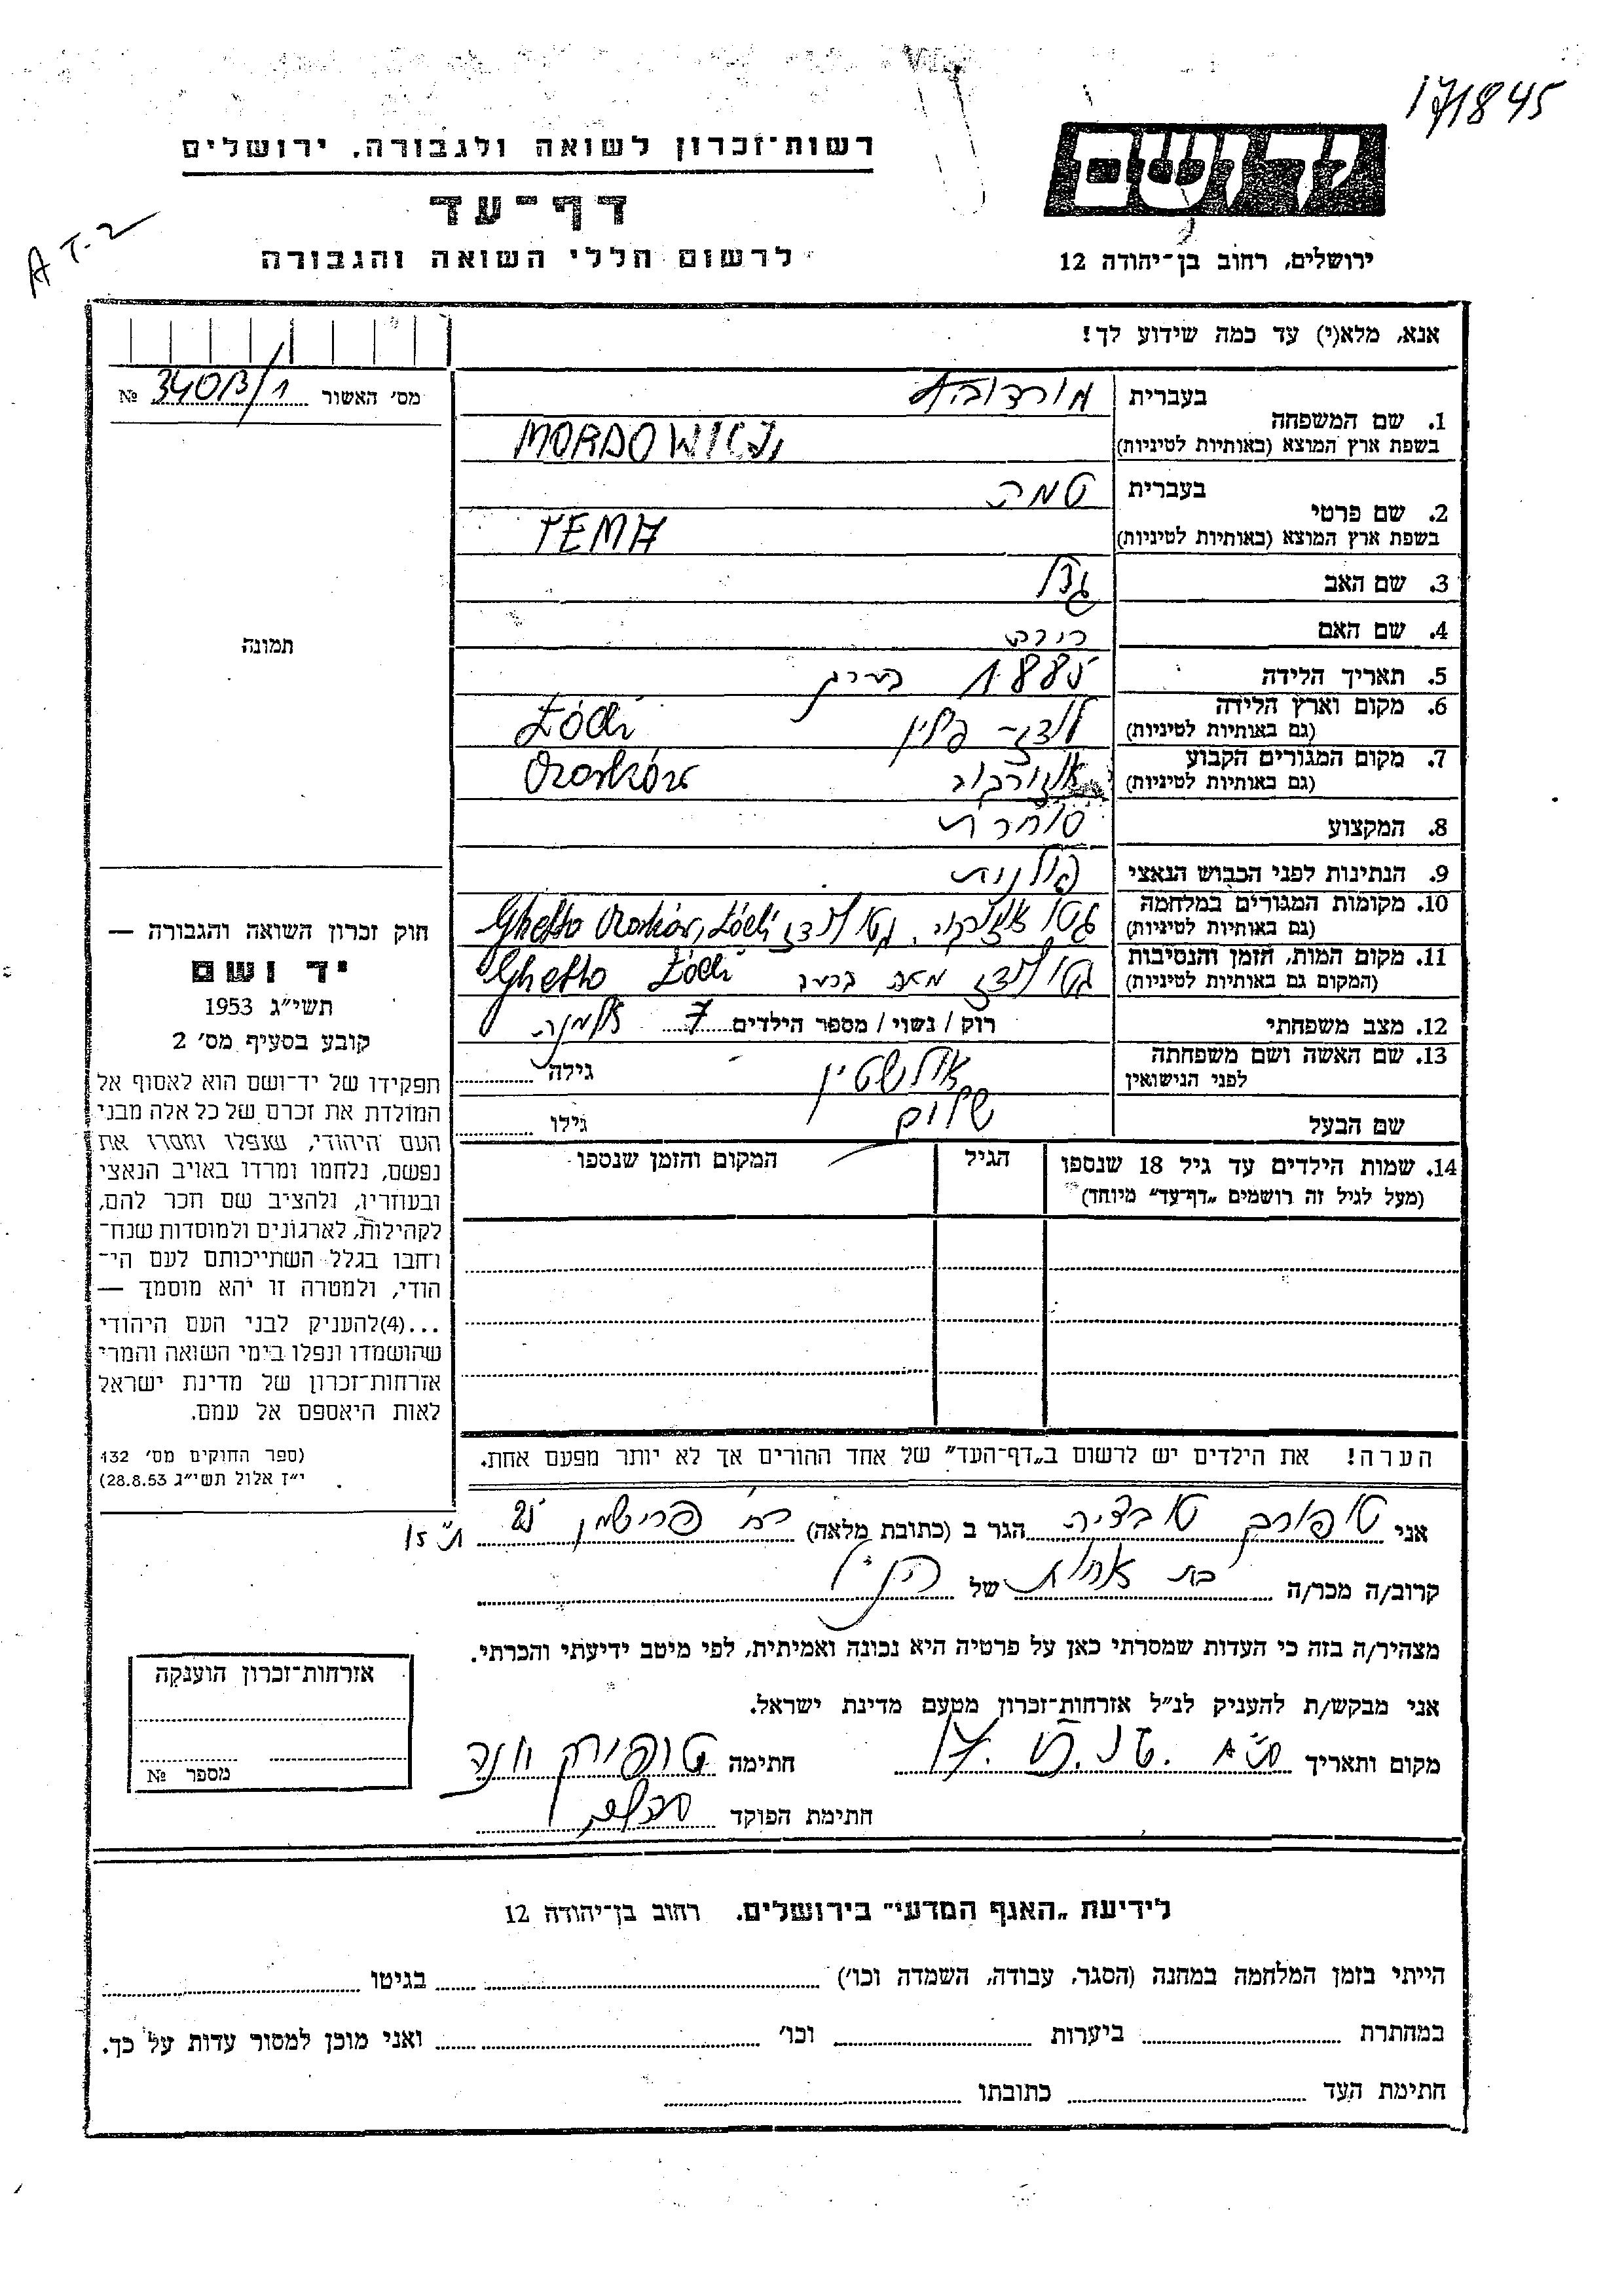 171845
רשות־זכרון לשואה ולגבורה. ירושלים
יד ושם
דף־עד
A T-2
לרשום חללי השואה והגבורה
ירושלים, רחוב בן־יהודה 12
אנא, מלא(י) עד כמה שידוע לך!
מס׳ האשור № 340B/1
בעברית
1. שם המשפחה
בשפת ארץ המוצא (באותיות לטיניות)
בעברית טמה
2. שם פרטי
בשפת ארץ המוצא (באותיות לטיניות) TEMA
3. שם האב
4. שם האם
תמונה
5. תאריך הלידה 1885
6. מקום וארץ הלידה לודז׳ - פולין Łódź
(גם באותיות לטיניות)
7. מקום המגורים הקבוע Ozorków
(גם באותיות לטיניות)
8. המקצוע סוחרת
9. הנתינות לפני הכבוש הנאצי פולנית
10. מקומות המגורים במלחמה גטו גטו לודז Ghetto Ozorków, Łódź
(גם באותיות לטיניות)
11. מקום המות, הזמן והנסיבות גטו לודז Ghetto Łódź
(המקום גם באותיות לטיניות)
12. מצב משפחתי רוק / נשוי / מספר הילדים 7 אלמנה
13. שם האשה ושם משפחתה
לפני הנישואין גילה
שם הבעל שלום גילו
14. שמות הילדים עד גיל 18 שנספו הגיל המקום והזמן שנספו
(מעל לגיל זה רושמים „דף־עד״ מיוחד)
חוק זכרון השואה והגבורה —
יד ושם
תשי״ג 1953
קובע בסעיף מס׳ 2
תפקידו של יד־ושם הוא לאסוף אל
המולדת את זכרם של כל אלה מבני
העם היהודי, שנפלו ומסרו את
נפשם, נלחמו ומרדו באויב הנאצי
ובעוזריו, ולהציב שם וזכר להם,
לקהילות, לארגונים ולמוסדות שנח־
רבו בגלל השתייכותם לעם הי־
הודי, ולמטרה זו יהא מוסמך —
...(4)להעניק לבני העם היהודי
שהושמדו ונפלו בימי השואה והמרי
אזרחות־זכרון של מדינת ישראל
לאות היאספם אל עמם.
(ספר החוקים מס׳ 132
י״ז אלול תשי״ג 28.8.53)
הערה! את הילדים יש לרשום ב„דף־העד״ של אחד ההורים אך לא יותר מפעם אחת.
אני הגר ב (כתובת מלאה) רח׳ פרישמן
קרוב/ה מכר/ה בת אחות של הנ״ל
מצהיר/ה בזה כי העדות שמסרתי כאן על פרטיה היא נכונה ואמיתית, לפי מיטב ידיעתי והכרתי.
אני מבקש/ת להעניק לנ״ל אזרחות־זכרון מטעם מדינת ישראל.
מקום ותאריך חתימה
חתימת הפוקד
אזרחות־זכרון הוענקה
מספר №
לידיעת „האגף המדעי״ בירושלים. רחוב בן־יהודה 12
הייתי בזמן המלחמה במחנה (הסגר, עבודה, השמדה וכו׳) בגיטו
במהתרת ביערות וכו׳ ואני מוכן למסור עדות על כך.
חתימת העד כתובתו